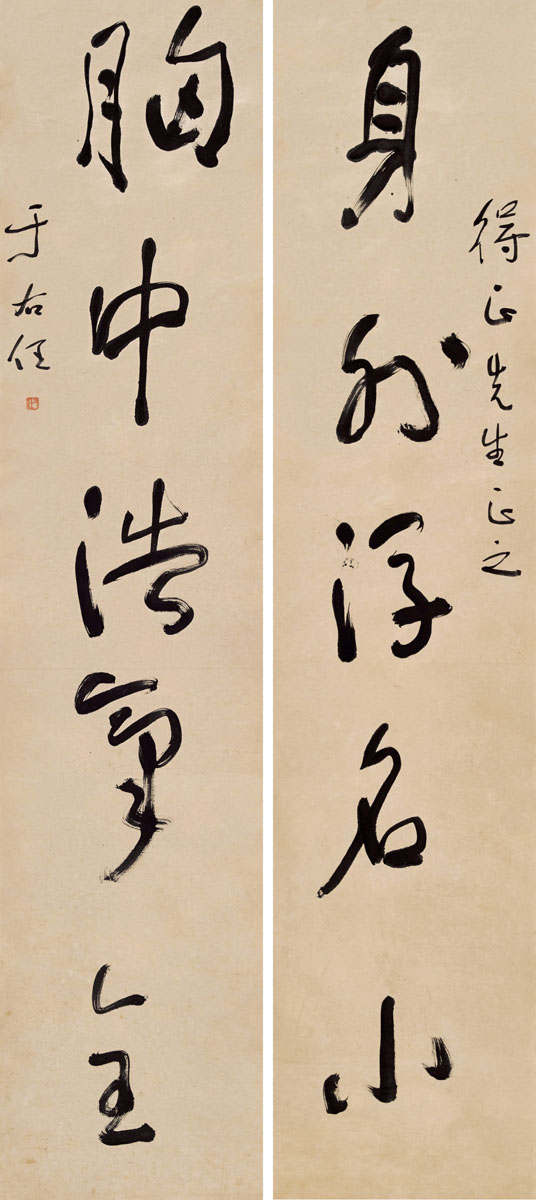 得正先生正之
身外浮名小
胸中浩氣全
于右任